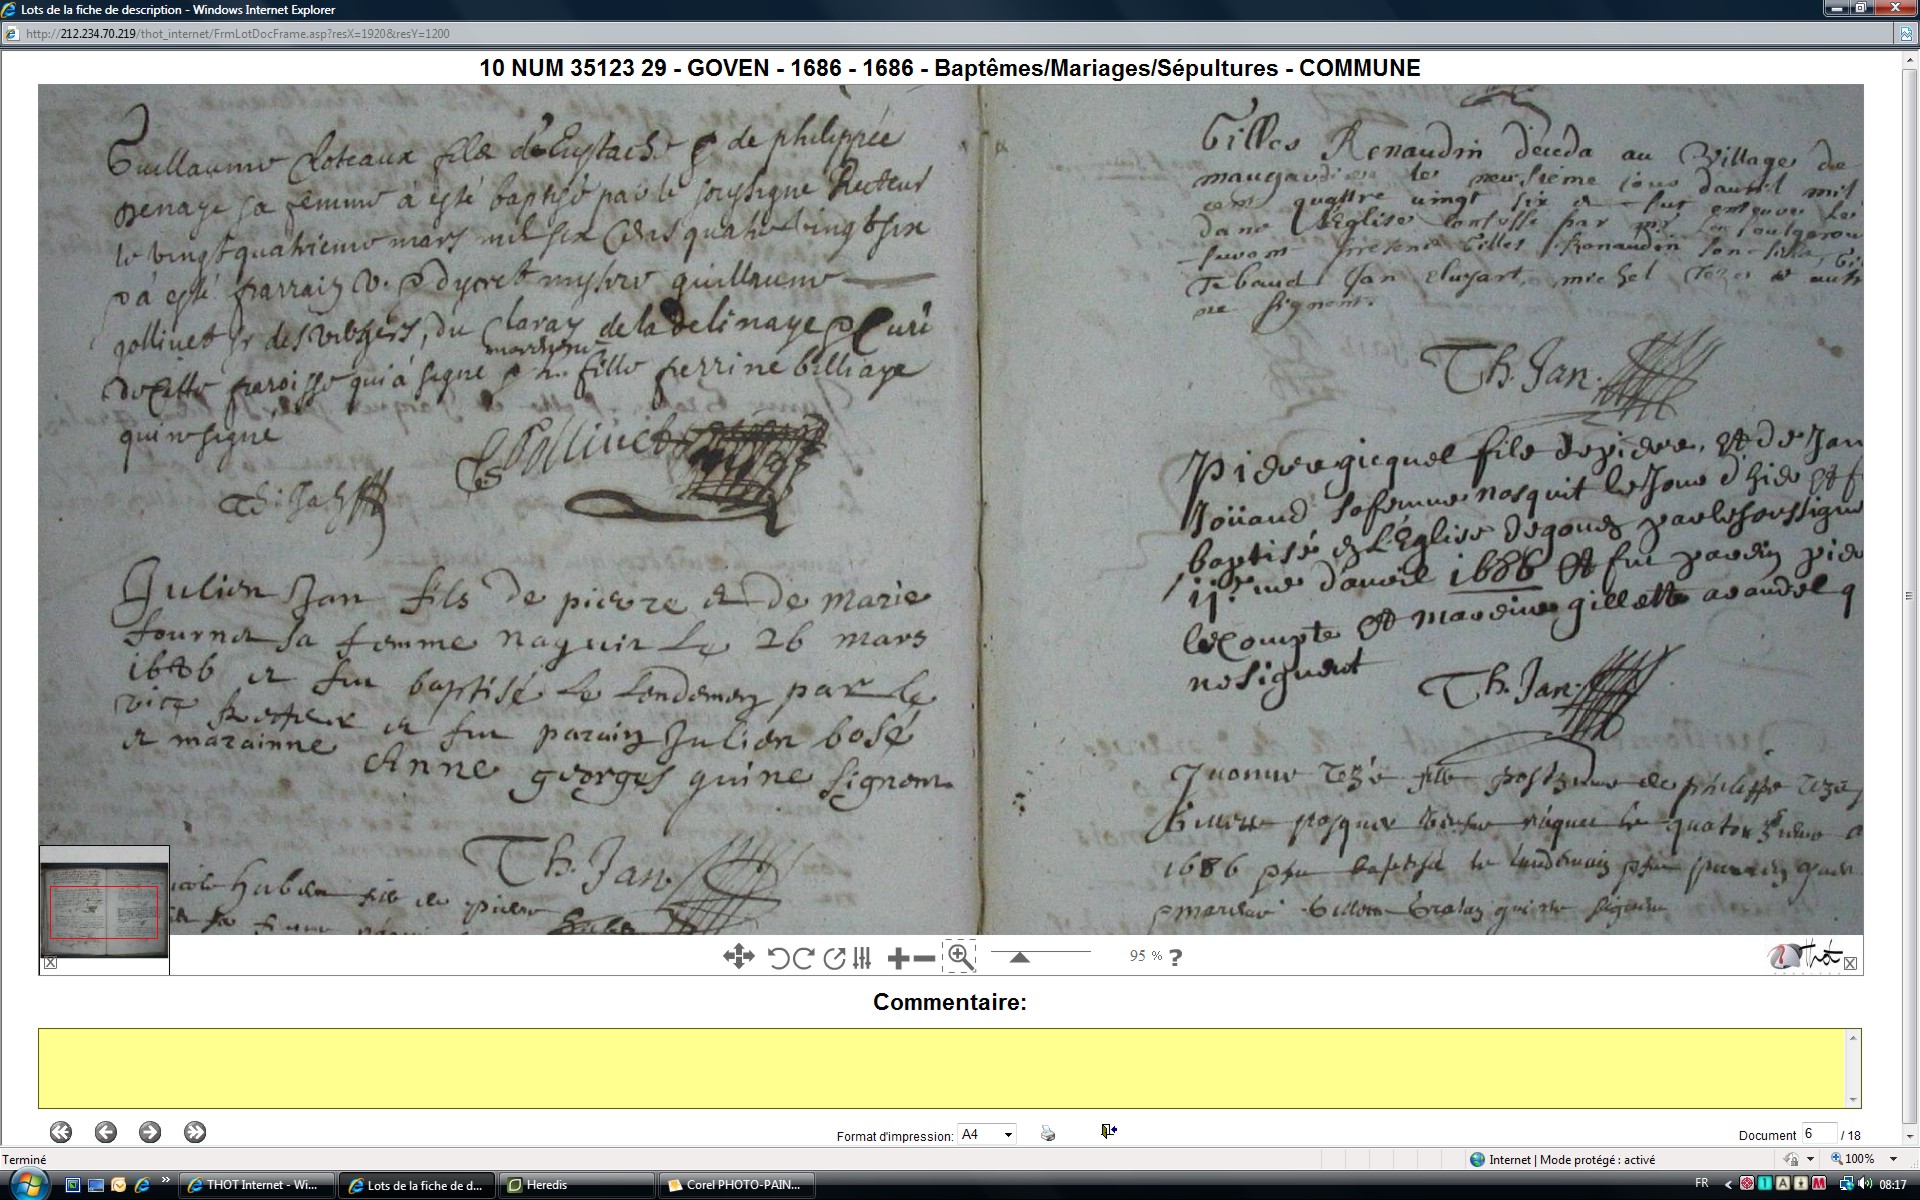 Lots de la fiche de description - Windows Internet Explorer
http://212.234.70.219/thot_internet/FrmLotDocFrame.asp?resX=1920&resY=1200
10 NUM 35123 29 - GOVEN - 1686 - 1686 - Baptêmes/Mariages/Sépultures - COMMUNE
Guillaume Coteaux fils d'Eustache & de philippée
sa femme à esté baptisé par le soussigné Recteur
le vingt quatrieme mars mil six Cens quatre vingt six
& a esté parrain v. & dycret missire guillaume
gollivet sr des Vergers, du Claray de la Belinaye & Curé
de Cette paroisse qui a signé & marraine h. fille perrine billiaye
qui ne signe
GGollivet
Th: Jan
Julien Jan fils de pierre et de marie
fournel sa femme naquit le 26 mars
1686 et fut baptisé le lendemen par le
vice Recteur et fut parain Julien bosé
et marainne Anne georges qui ne signent
Th. Jan.
Huben fils de pierre
Gilles Renaudin déceda au Village de
le neufieme jour davril mil
cens quattre vingt six et fut enteré le
dans L'Eglise par
suivant presens Gilles Renaudin son fils, Gi
Tebaud Jan cluzart, michel Tezé et autr
ne signent.
Th. Jan.
Pierre gicquel fils de pierre, et de Jan
Joüaud sa femme nasquit le Jour d'hier et f
baptisé en L'Eglise de goven par le soussigné
11.me d'avril 1686 et fut parein pier
le Compte et mareine gillette q
ne signent
Th. Jan.
Yvonne Tezé fille postume de philippe Tezé
Gillette pasquer naquit le quatorzieme
1686 & fut baptisé le landemain & fut parrain
& mareine Gillette qui ne signent
95 % ?
Thot
Commentaire:
Format d'impression: A4
Document 6 / 18
Terminé
Internet | Mode protégé : activé
100%
THOT Internet - Wi...
Lots de la fiche de d...
Heredis
Corel PHOTO-PAIN...
FR
08:17